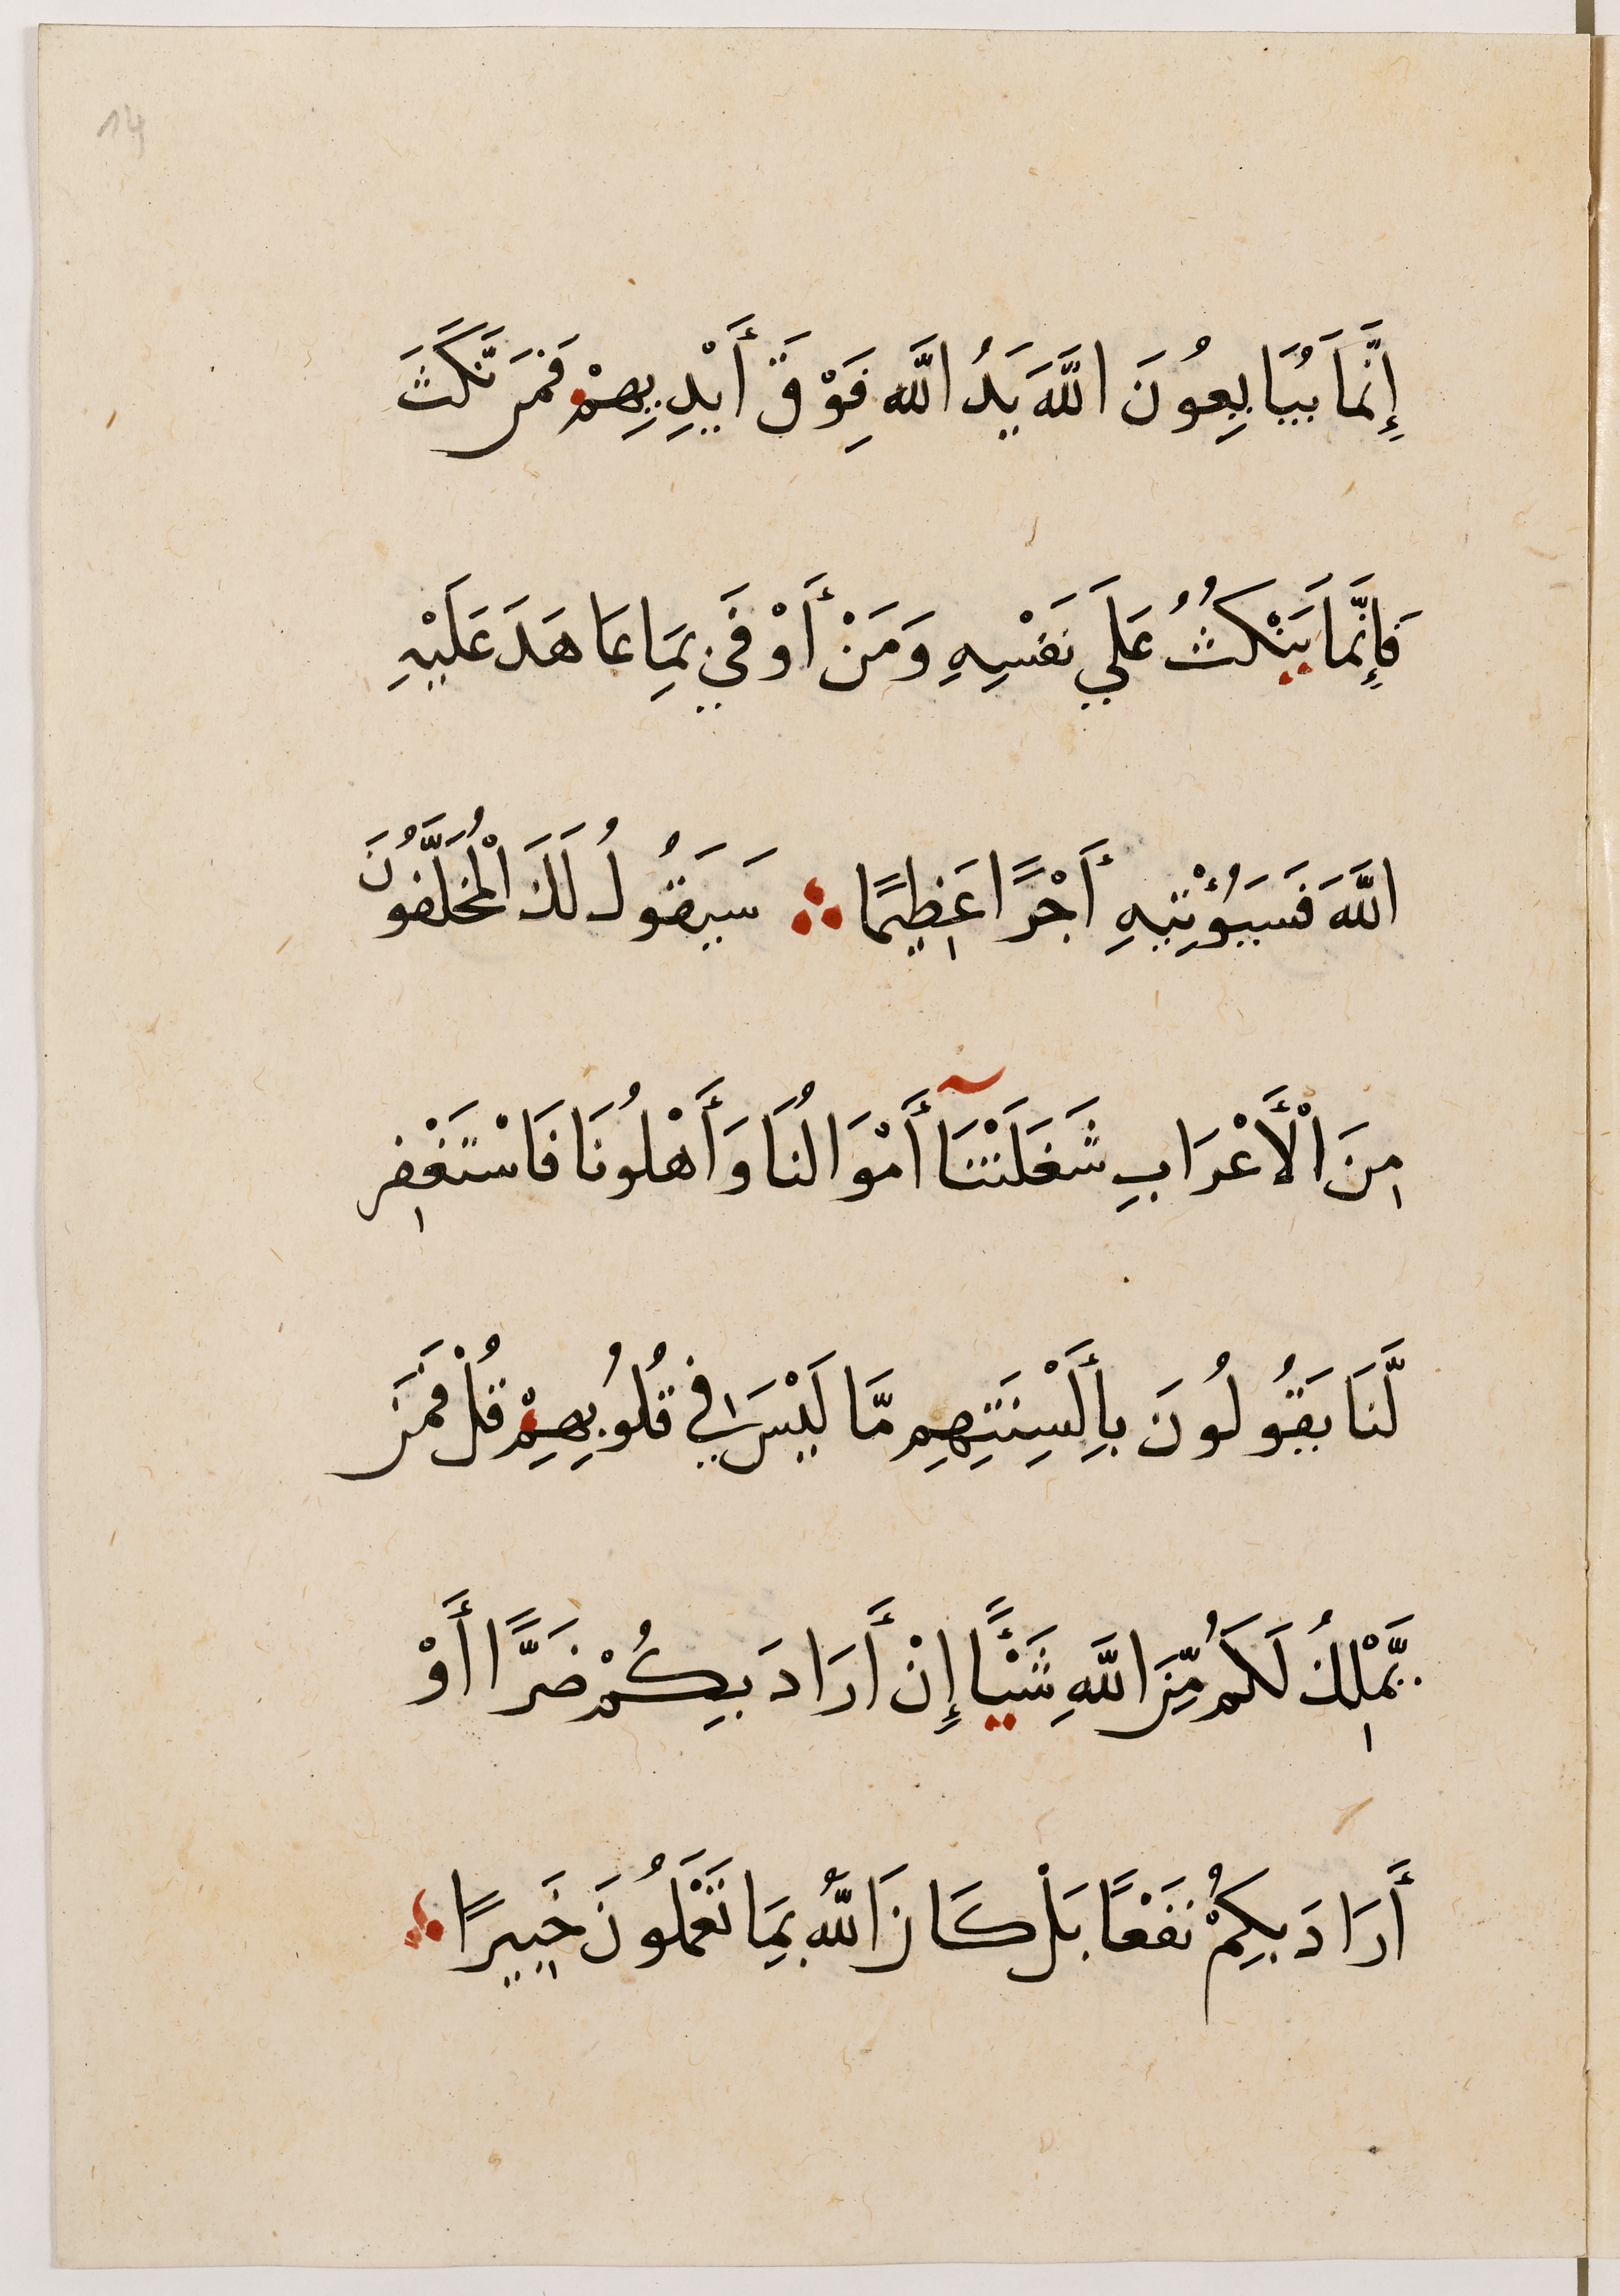 14
إِنَّمَا يُبَايِعُونَ اللَّهَ يَدُ اللَّه فَوْقَ أَيْدِيهِمْ فَمَن نَّكَثَ
فَإِنَّمَا يَنْكُثُ عَلَي نَفْسِهِ وَمَنْ أَوْفَي بِمَا عَاهَدَ عَلَيْهِ
اللَّهَ فَسَيُؤْتِيهِ أَجْرًا عَظِيمًا ∴ سَيَقُولُ لَكَ الْمُخَلَّفُونَ
مِنَ الْأَعْرَابِ شَغَلَتْنَآ أَمْوَالُنَا وَأَهْلُونَا فَاسْتَغْفِر
لَّنَا يَقُولُونَ بِأَلْسِنَتِهِم مَّا لَيْسَ فِي قُلُوبِهِمْ قُلْ فَمَنْ
يَّمْلِكُ لَكُم مِّنَ اللَّهِ شَيْـًٔا إِنْ أَرَادَ بِكُمْ ضَرًّا أَوْ
أَرَادَ بِكُمْ نَفْعًا بَلْ كَانَ اللَّهُ بِمَا تَعْمَلُونَ خَبِيرًا ∴